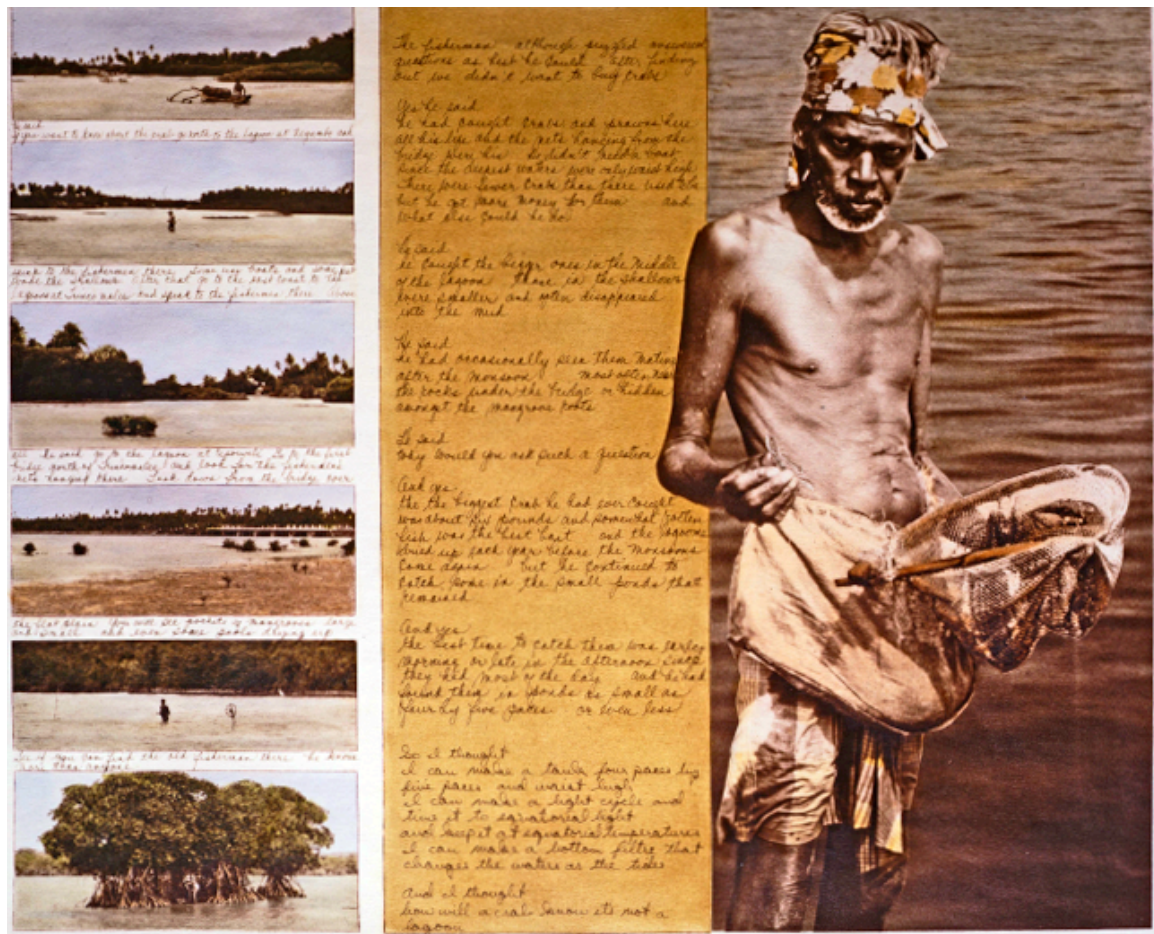 He said
if you want to know about the crab go north of the lagoon at Negombo and
speak to the fishermen there Some use boats and some just
wade the shallows After that go to the east coast to the
lagoons at Trincomalee and speak to the fishermen there Above
all he said go to the lagoon at Go to the first
bridge north of Trincomalee and look for the fisherman's
nets hanging there Look down from the bridge over
the flat plain You will see pockets of mangroves large
and small and even some pools drying up
See if you can find the old fisherman there he knows
more than anyone
The fisherman although puzzled answered
questions as best he could after finding
out we didn't want to buy crabs
Yes he said
he had caught crabs and prawns here
all his life and the nets hanging from the
bridge were his He didn't need a boat
since the deepest waters were only waist high
There were fewer crabs than there used to be
but he got more money for them and
what else could he do
He said
he caught the bigger ones in the middle
of the lagoon Those in the shallows
were smaller and often disappeared
into the mud
He said
he had occasionally seen them mating
after the monsoon most often near
the rocks under the bridge or hidden
amongst the mangrove roots
He said
why would you ask such a question
And yes
the the biggest crab he had ever caught
was about six pounds and somewhat rotten
fish was the best bait and the lagoons
dried up each year before the monsoons
came again but he continued to
catch some in the small ponds that
remained
And yes
the best time to catch them was early
morning or late in the afternoon since
they hid most of the day and he had
found them in ponds as small as
four by five paces or even less
So I thought
I can make a tank four paces by
five paces and waist high
I can make a light cycle and
time it to equatorial light
and keep it at equatorial temperatures
I can make a bottom filter that
changes the waters as the tides
And I thought
how will a crab know its not a
lagoon